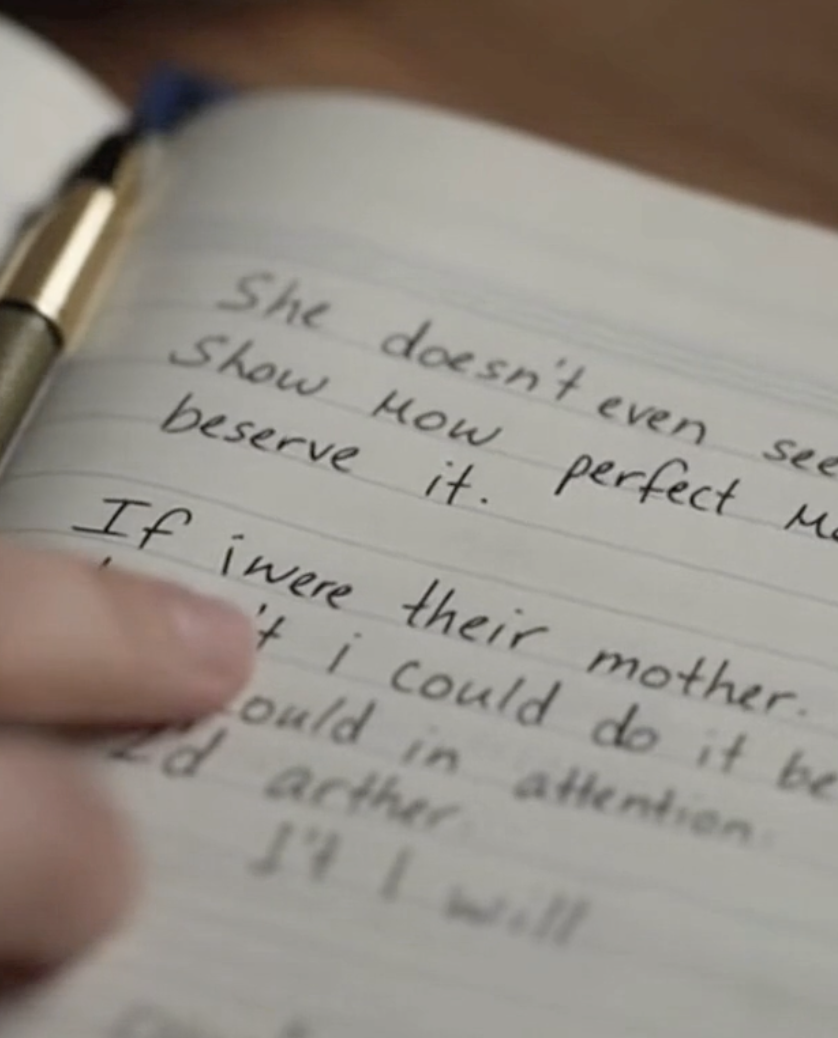 She doesn't even see
Show how perfect
beserve it.
If i were their mother.
't i could do it be
ould in attention.
arther.
I't I will